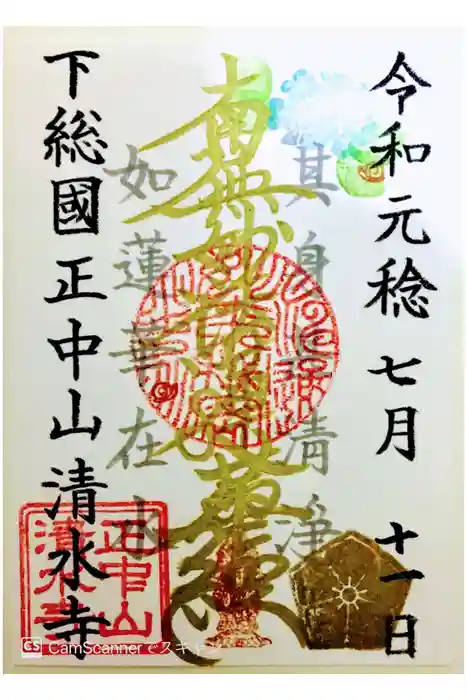 令和元稔 七月 十一日
其身甚清浄
南無妙法蓮華経
如蓮華在水
下総國正中山清水寺
正中山
清水寺
CS CamScannerでスキャン